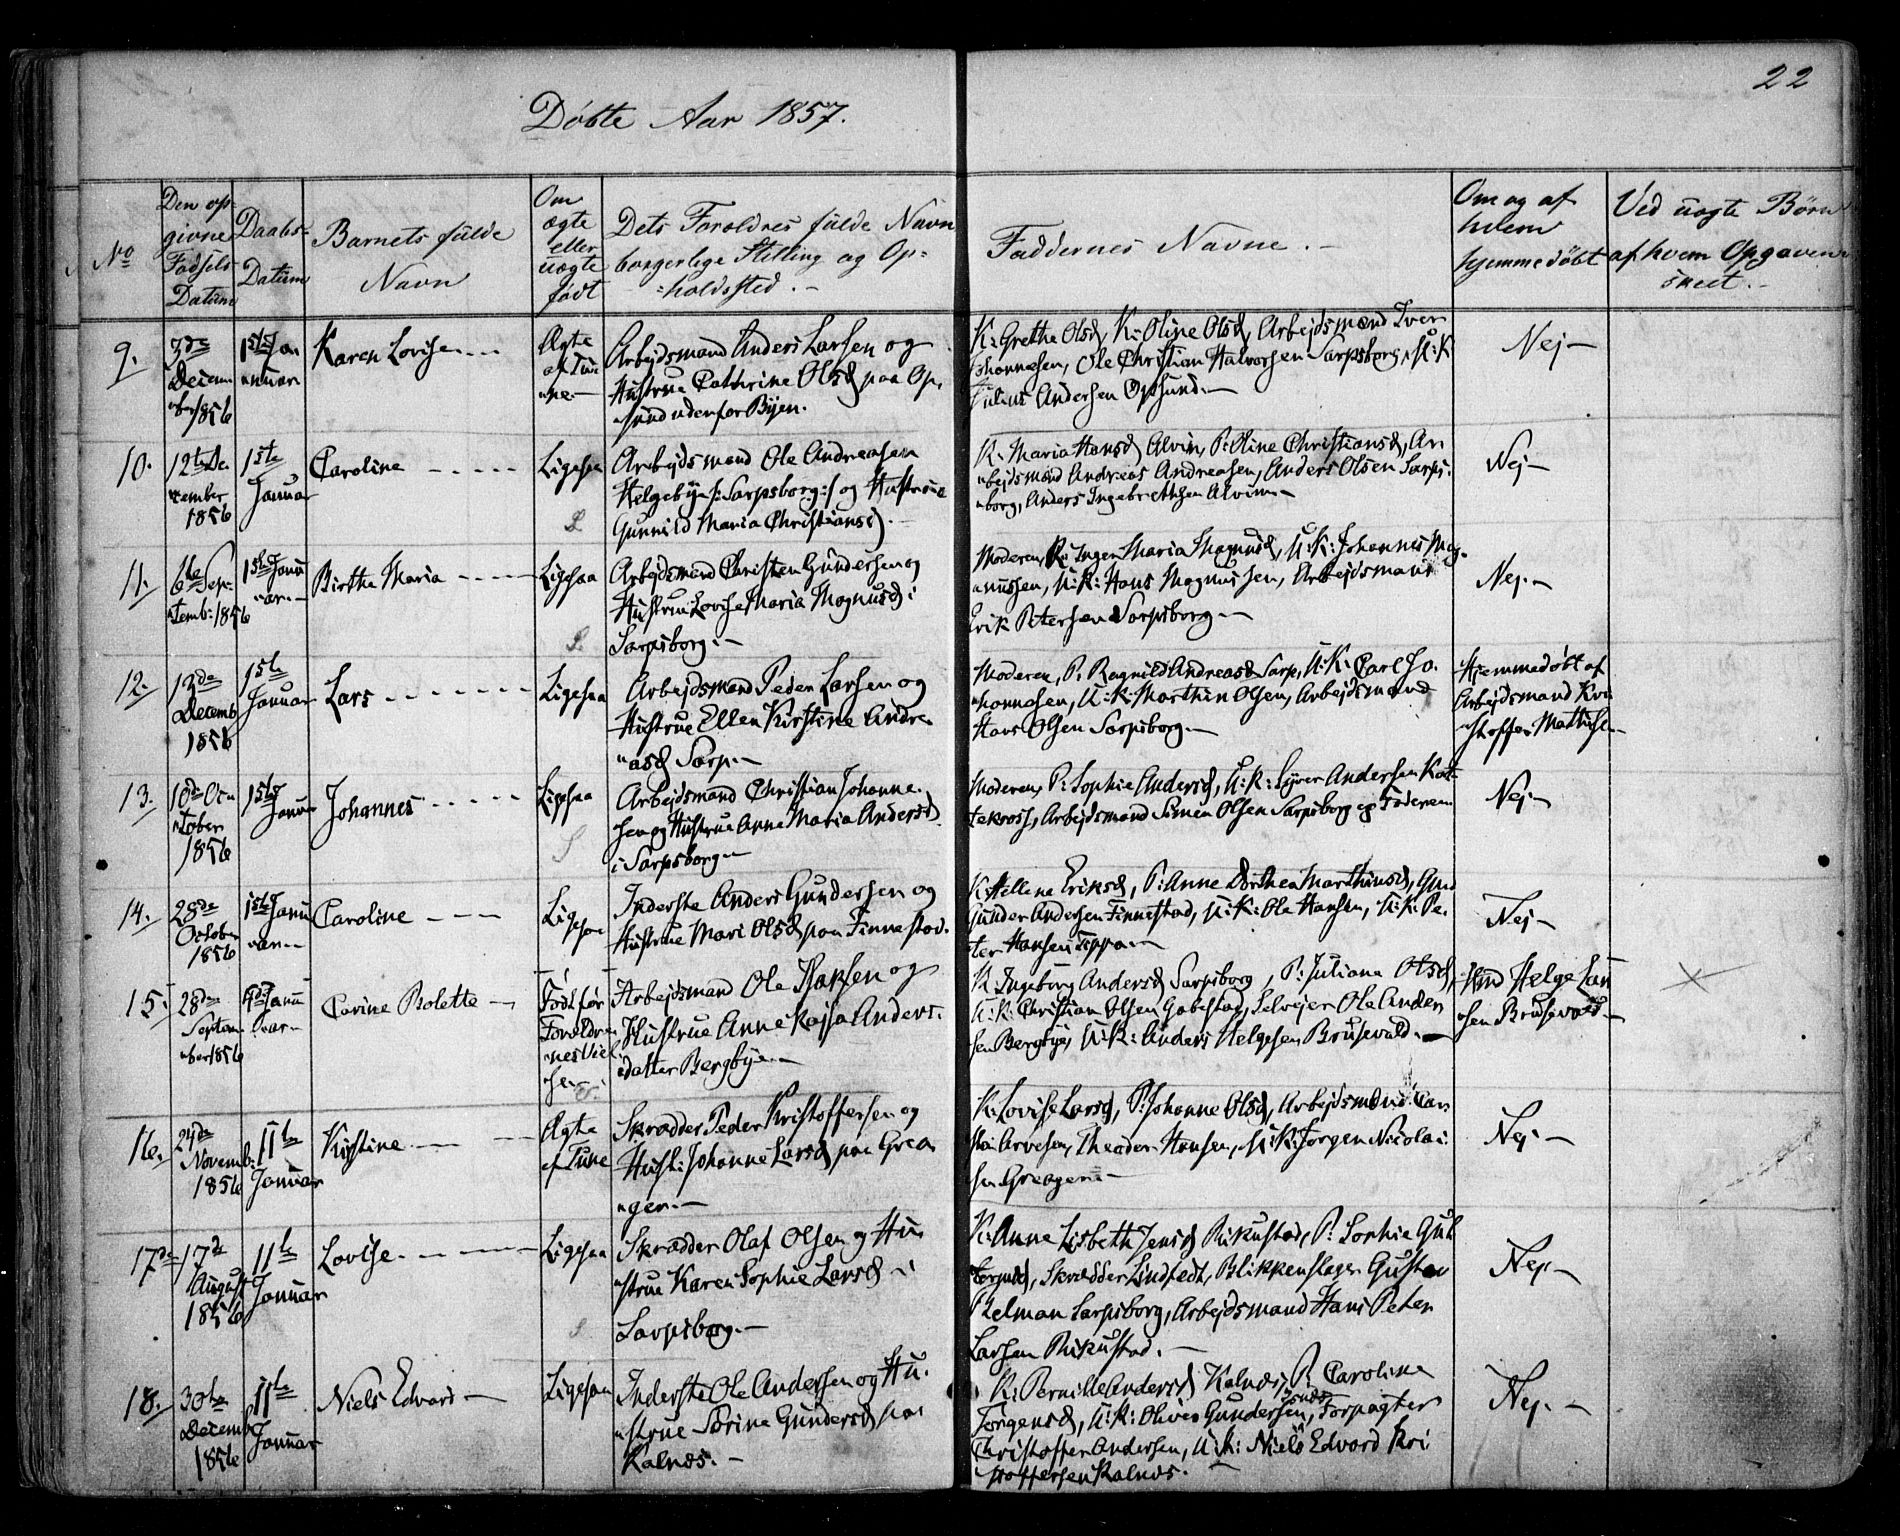 22
Döbte Aar 1857.
No
Den op-
givne
Födsels
Datum
Daabs-
Datum
Barnets fulde
Navn
Om
ægte
eller
uægte
födt
Dets Forældres fulde Navn
borgerlige Stilling og Op=
=holdssted.
Faddernes Navne.
Om og af
hvem
hjemmedöbt
Ved uægte Börn
af hvem Opgaven
skeet.
9.
3de
Decem
ber 1856
1ste Jan
nuar
Karen Lovise
Ægte
af Tu
ne.
Arbejdsmand Anders Larsen og
Hustrue Cathrine Olsd paa Op,
sund udenfor Byen.
K: Grethe Olsd, K: Oline Olsd, Arbejdsmænd Iver
Johannesen, Ole Christian Halvorsen Sarpsborg, U:K
Julius Andersen Opsund.
Nej
10.
12te De
cember
1856
1ste
Januar
Caroline
Ligesaa
Arbejdsmand Ole Andreasen
Helgebye /: Sarpsborg:/ og Hustrue
Gunnild Maria Christiansd.
K. Maria Hansd Alvim, P: Oline Christiansd, Ar
bejdsmænd Andreas Andreasen, Anders Olsen Sarps,
borg, Anders Ingebrethsen Alvim
Nej
11.
6te Sep-
temb: 1856
1ste Janu
ar.
Birthe Maria
Ligesaa
Arbejdsmand Christen Gundersen og
Hustrue Lovise Maria Magnusd i
Sarpsborg.
Moderen, P: Inger Maria Magnusd, U:K: Johannes Mag-
nussen, U:K: Hans Magnussen, Arbejdsmand
Erik Petersen Sarpsborg.
Nej.
12.
13de
Decemb
1856
1ste
Januar
Lars
Ligesaa
Arbejdsmand Peder Larsen og
Hustrue Ellen Kirstine Andre
asd Sarp.
Moderen, P. Ragnild Andreasd Sarp, U:K: Carl Jo.
hannesen, U:K: Marthin Olsen, Arbejdsmand
Hans Olsen Sarpsborg.
Hjemmedöbt af
Arbejdsmand Kri
stoffer Mathise
13.
10de Oc
tober
1856
1ste
Januar
Johannes
Ligesaa
Arbejdsmand Christian Johanne.
sen og Hustrue Anne Maria Andersd
i Sarpsborg
Moderen, P: Sophie Andersd, U:K: Syver Andersen Kat
tekross, Arbejdsmand Simen Olsen Sarpsborg og Faderen
Nej.
14.
28de
October
1856
1ste Janu
ar.
Caroline
Ligesaa
Inderste Anders Gundersen og
Hustrue Mari Olsd paa Finnestad.
K: Hellene Eriksd, P: Anne Dorthea Marthinsd, Gmd
Gunder Andersen Finnestad, U:K: Ole Hansen, U:K: Pe.
ter Hansen
Nej
15.
28de
Septem
ber 1856
Janu
ar
Carine Bolette
Född för
Forældre
nes Viel
se.
Arbejdsmand Ole Isaksen og
Hustrue Anne Kajsa Anders.
datter Bergbye.
K Ingeborg Andersd Sarpsborg, P: Juliane Olsd,
U:K: Christian Olsen Gabestad, Selvejer Ole Ander
sen Bergbye, U:K: Anders Helgesen Brusevold.
Hmd Helge Lau
sen Brusevold
16.
24de
Novemb:
1856
11te
Januar
Kirstine
Ægte
af Tune
Skrædder Peder Kristoffersen og
Hust: Johanne Larsd paa Grea
ger.
K: Lovise Larsd, P: Johanne Olsd, Arbejdsmænd
Arvesen, Theodor Hansen, U:K: Jörgen Nicolai
sen Greager
Nej.
17de
17de
August
1856
11te
Januar
Lovise.
Ligesaa
Skrædder Olaf Olsen og Hu
strue Karen Sophie Larsd i
Sarpsborg.
K: Anne Lisbeth Jensd Rikustad, P: Sophie Gul
Skrædder Lindstedt, Blikkenslager Gustav
Belman Sarpsborg, Arbejdsmand Hans Peter
Larsen Rikustad.
Nej.
18.
30te
Decemb
1856
11te
Januar
Niels Edvard
Ligesaa
Inderste Ole Andersen og Hu.
strue Sörine Gundersd paa
Kalnæs.
K: Pernille Andersd Kalnæs, P. Caroline
Jörgensd, U:K: Oliver Gundersen, Forpagter
Christoffer Andersen, U.K: Niels Edvard Kri
stoffersen Kalnæs.
Nej.